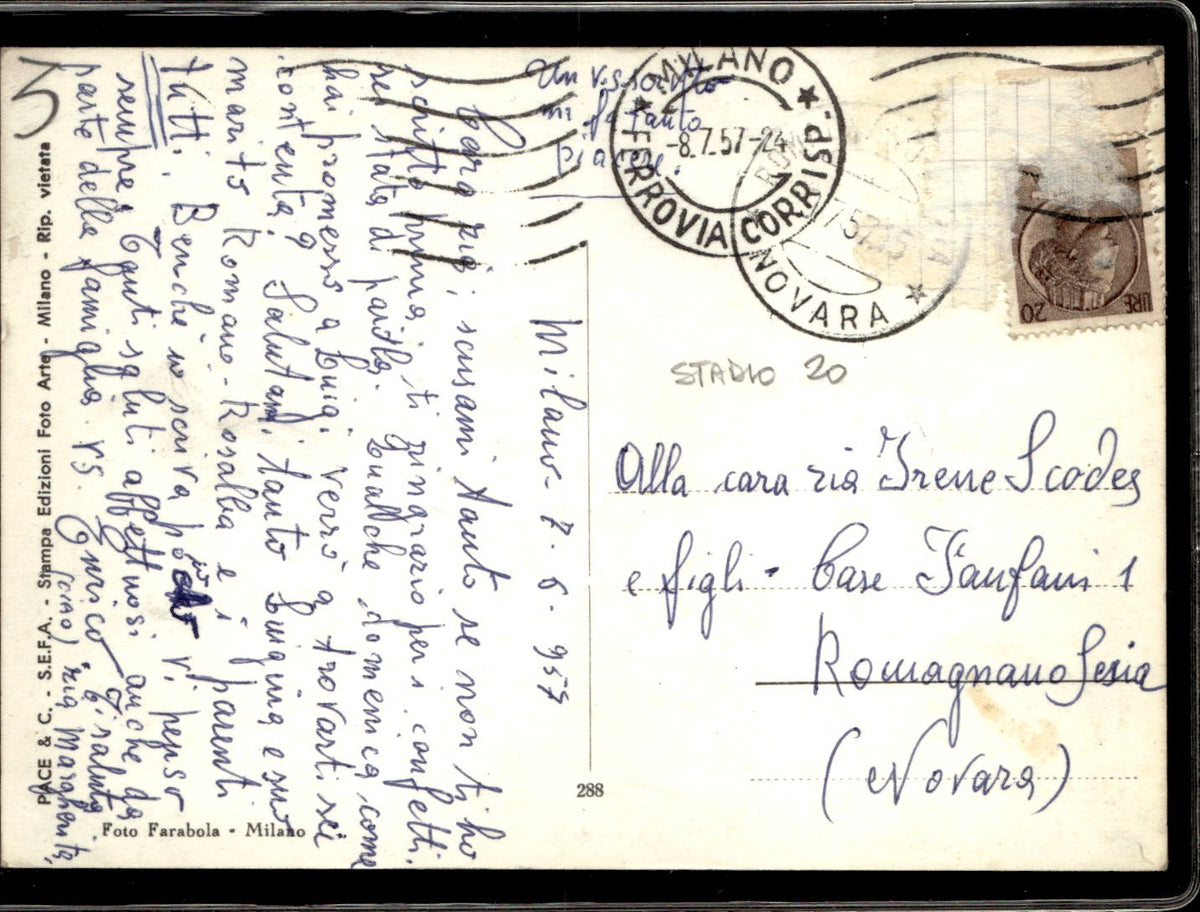 Milano - 7. 6. 957
Cara zia, scusami tanto se non ti ho
scritto prima, ti ringrazio per i confetti.
sei stata di parola. Qualche domenica, come
hai promesso a Luigi verrò a trovarti sei
contenta? Salutami tanto Luigina e suo
marito Romano - Rosalba e i parenti
tutti. Benchè io scriva poco vi penso
sempre. Tanti saluti affettuosi anche da
parte della famiglia. vs. Enrico
ti saluta la zia Margherita,
Un vs. scritto
mi fa tanto
piacere.
MILANO
FERROVIA CORRISP.
-8.7.57-24
NOVARA
LIRE 20
STADIO 20
Alla cara zia Irene Scodes
e figli - Case Fanfani 1
Romagnano Sesia
(Novara)
288
PACE & C. - S.E.F.A. - Stampa Edizioni Foto Arte - Milano - Rip. vietata
Foto Farabola - Milano